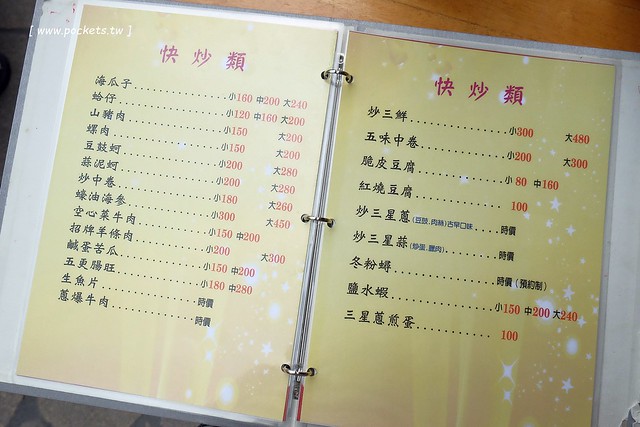 [ www.pockets.tw ]
快炒類
海瓜子..........小160 中200 大240
蛤仔..........小120 中160 大200
山豬肉..........小150 大200
螺肉..........小150 大200
豆鼓蚵..........小200 大280
蒜泥蚵..........小200 大280
炒中卷..........小180 大260
蠔油海參..........小300 大450
空心菜牛肉..........小150 中200
招牌羊條肉..........小200 大300
鹹蛋苦瓜..........小150 中200
五更腸旺..........小180 中280
生魚片..........時價
蔥爆牛肉..........時價
快炒類
炒三鮮..........小300 大480
五味中卷..........小200 大300
脆皮豆腐..........小 80 中160
紅燒豆腐.......... 100
炒三星蔥(豆鼓.肉絲)古早口味....時價
炒三星蒜(炒蛋.臘肉)........時價
冬粉蟳..........時價(預約制)
鹽水蝦..........小150 中200 大240
三星蔥煎蛋.......... 100